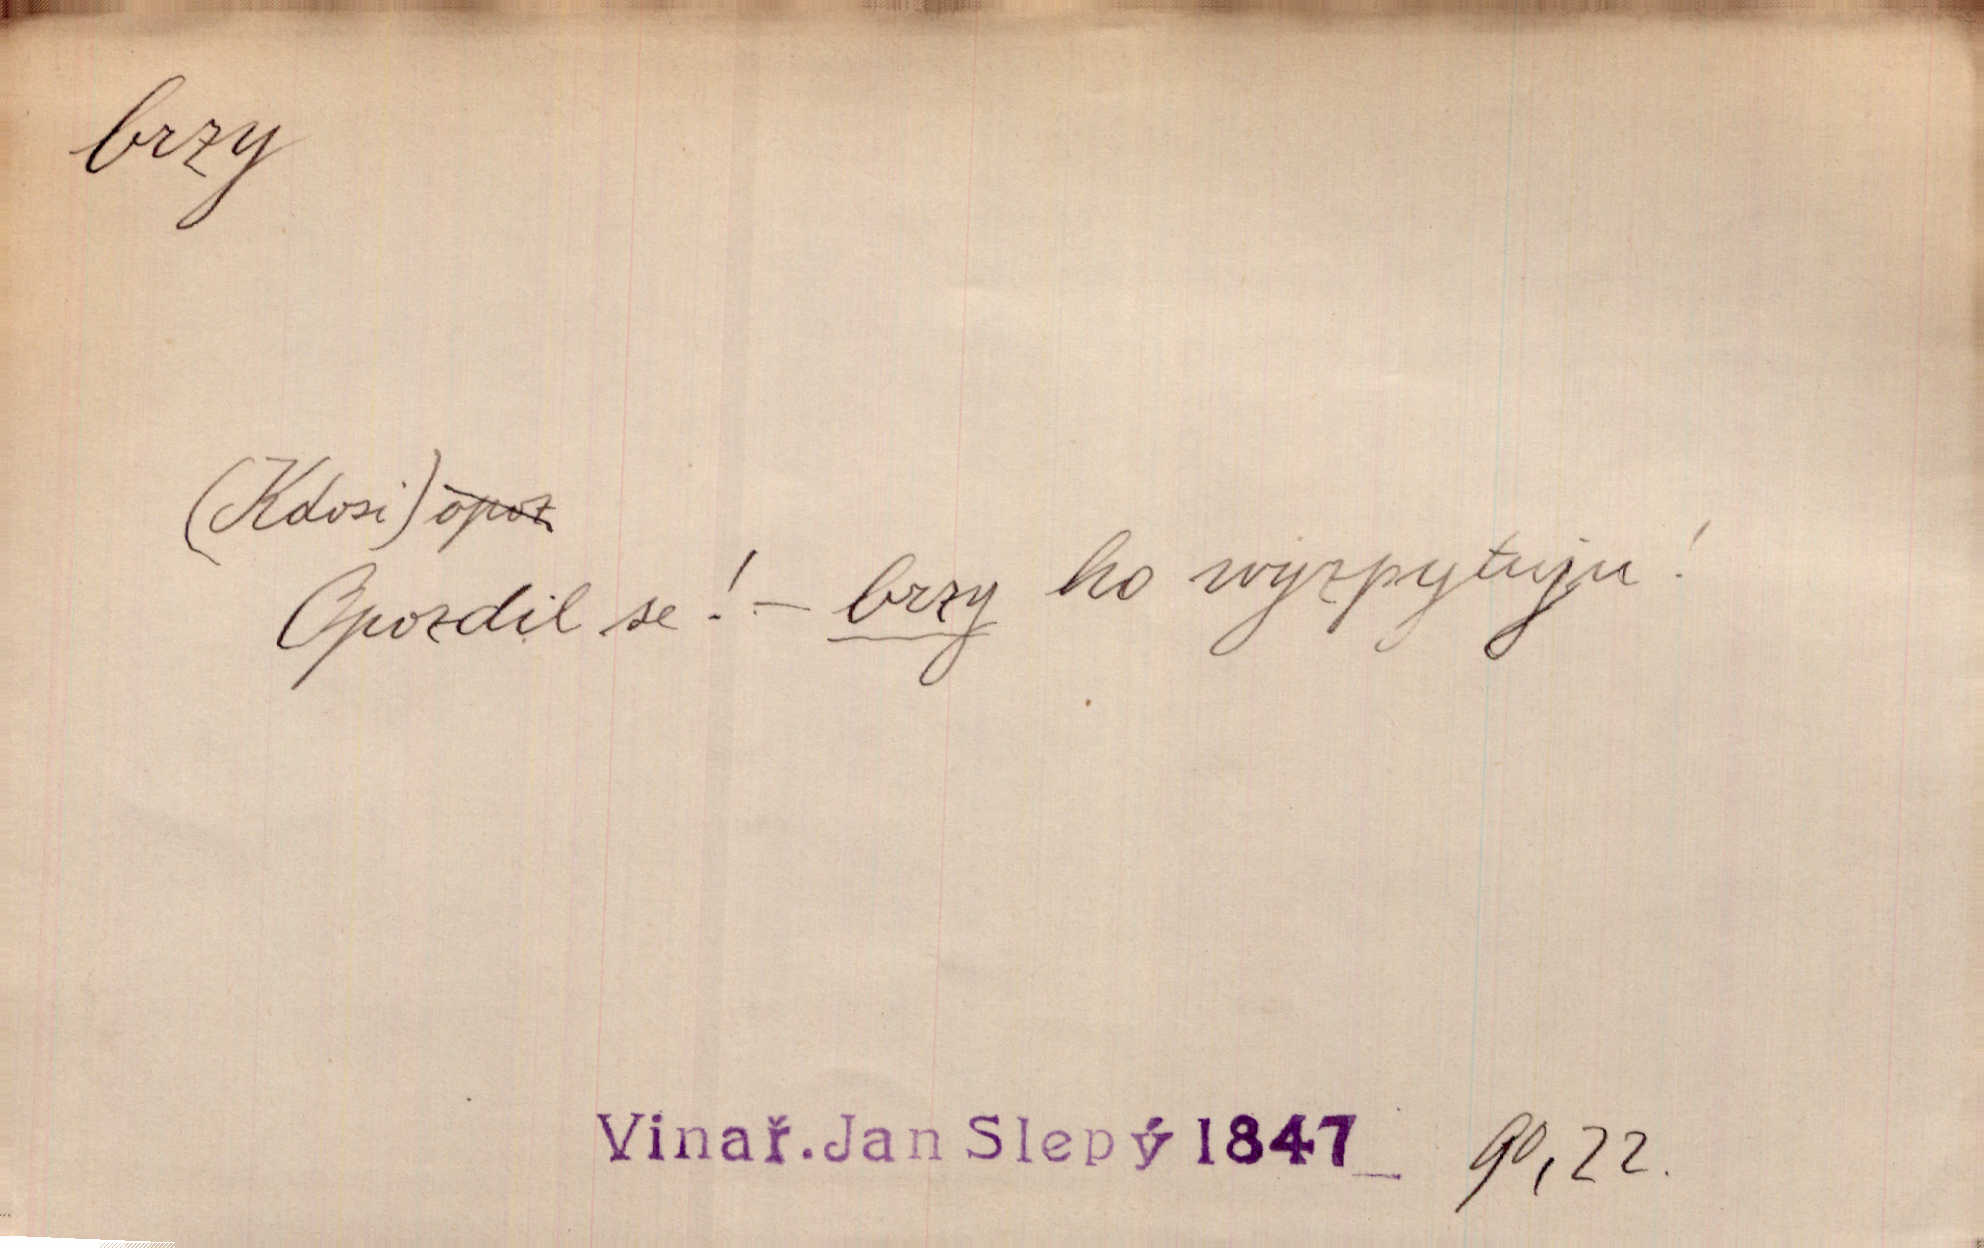 brzy
(Kdosi) opoz
Opozdil se! – brzy ho wyzpytuju!
Vinař. Jan Slepý 1847_ 90, 22.